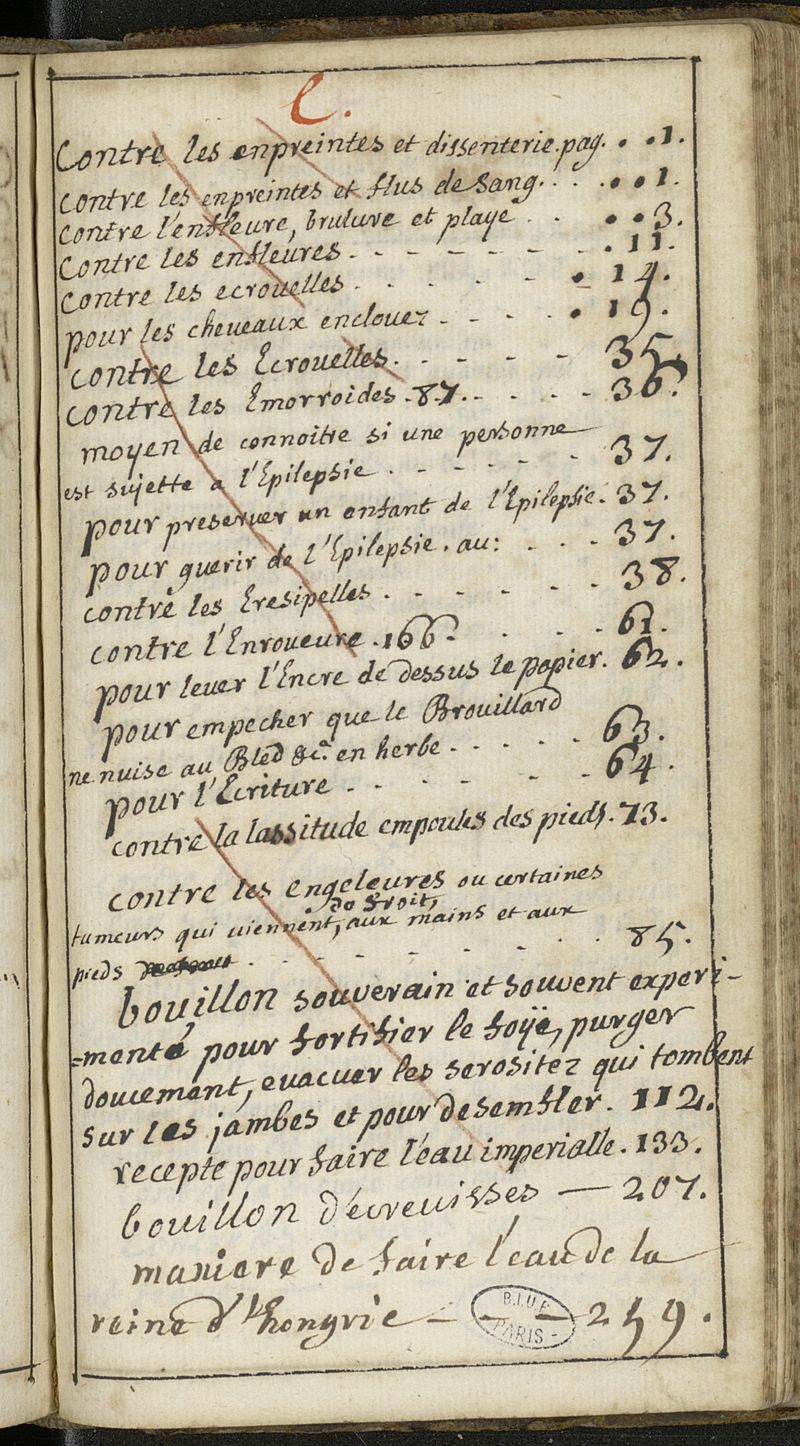 E.
Contre les enpreintes et dissenterie. pag. . . 1.
contre les enpreintes et flus de sang. . . . . . 1.
contre l'enfleure, bruluve et playe . . . . 3.
contre les enfleures. - - - - - - . 11.
contre les ecrouelles . . . . - . 14.
pour les cheveaux enclouez - - - . . 19.
contre les Ecrouelles. - - - - 35.
contre les Emorroides . 87. - - - - 36.
moyen de connoitre si une personne
est sujette a l'Epilepsie . - - - - - 37.
pour preserver un enfant de l'Epilepsie. 37.
pour guerir de l'Epilepsie. au: . . . 37.
contre les Eresipelles . - - - - - 38.
contre l'Enroueure . 166. . . . 61.
pour lever l'Encre de dessus le papier. 62.
pour empecher que le Brouillard
ne nuise au Bled &ca. en herbe . - - - - 63.
pour l'Ecriture . - - - - - 64.
contre la lassitude empoules des pieds. 73.
contre les engeleures ou certaines
tumeurs qui viennent, do froit, aux mains et aux
pieds . - - - - - - - . 85.
bouillon souverain et souvent experi-
=menté pour fortifier le foÿe, purger
doucement, evacuer les serositez qui tombent
sur les jambes et pour desemfler. 112.
recepte pour faire l'eau imperialle. 133.
bouillon d'écrevisses — 207.
maniere de faire l'eau de la
reine d'hongrie — — 259.
B.I.U.P.
PARIS -